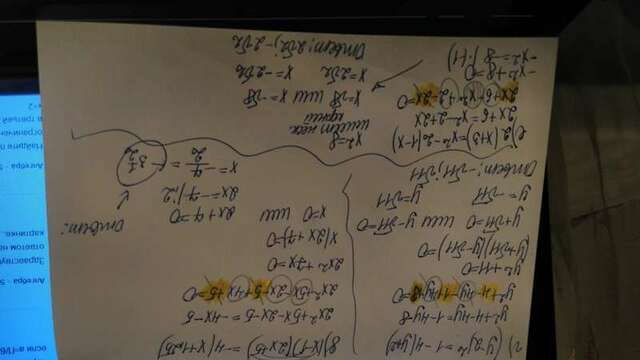 г) (y-2)²=1-4(y+2)
y²+4-4y=1-4y-8
y²+4-4y-1+4y+8=0
y²+11=0
(y+√11)(y-√11)=0
y+√11=0 или y-√11=0
y=-√11 y=√11
Ответ: -√11; √11
(x-1)(2x+5)=-4(x+1,25)
2x²+5x-2x-5=-4x-5
2x²+5x-2x-5+4x+5=0
2x²+7x=0
x(2x+7)=0
x=0 или 2x+7=0
2x=-7 |:2
x=-7/2=-3 1/2
Ответ:
е) 2(x+3)=x²-2(1-x)
2x+6=x²-2+2x
2x+6-x²+2-2x=0
-x²+8=0
-x²=-8 |(-1)
x²=8
имеет неск.
корней
x=√8 или x=-√8
x=2√2 x=-2√2
Ответ: 2√2; -2√2
если a=П/6
Алгебра - 5
Здравству
ответом н
картинке.
Алгебра - 5
Найдите п
ограничен
в третьей